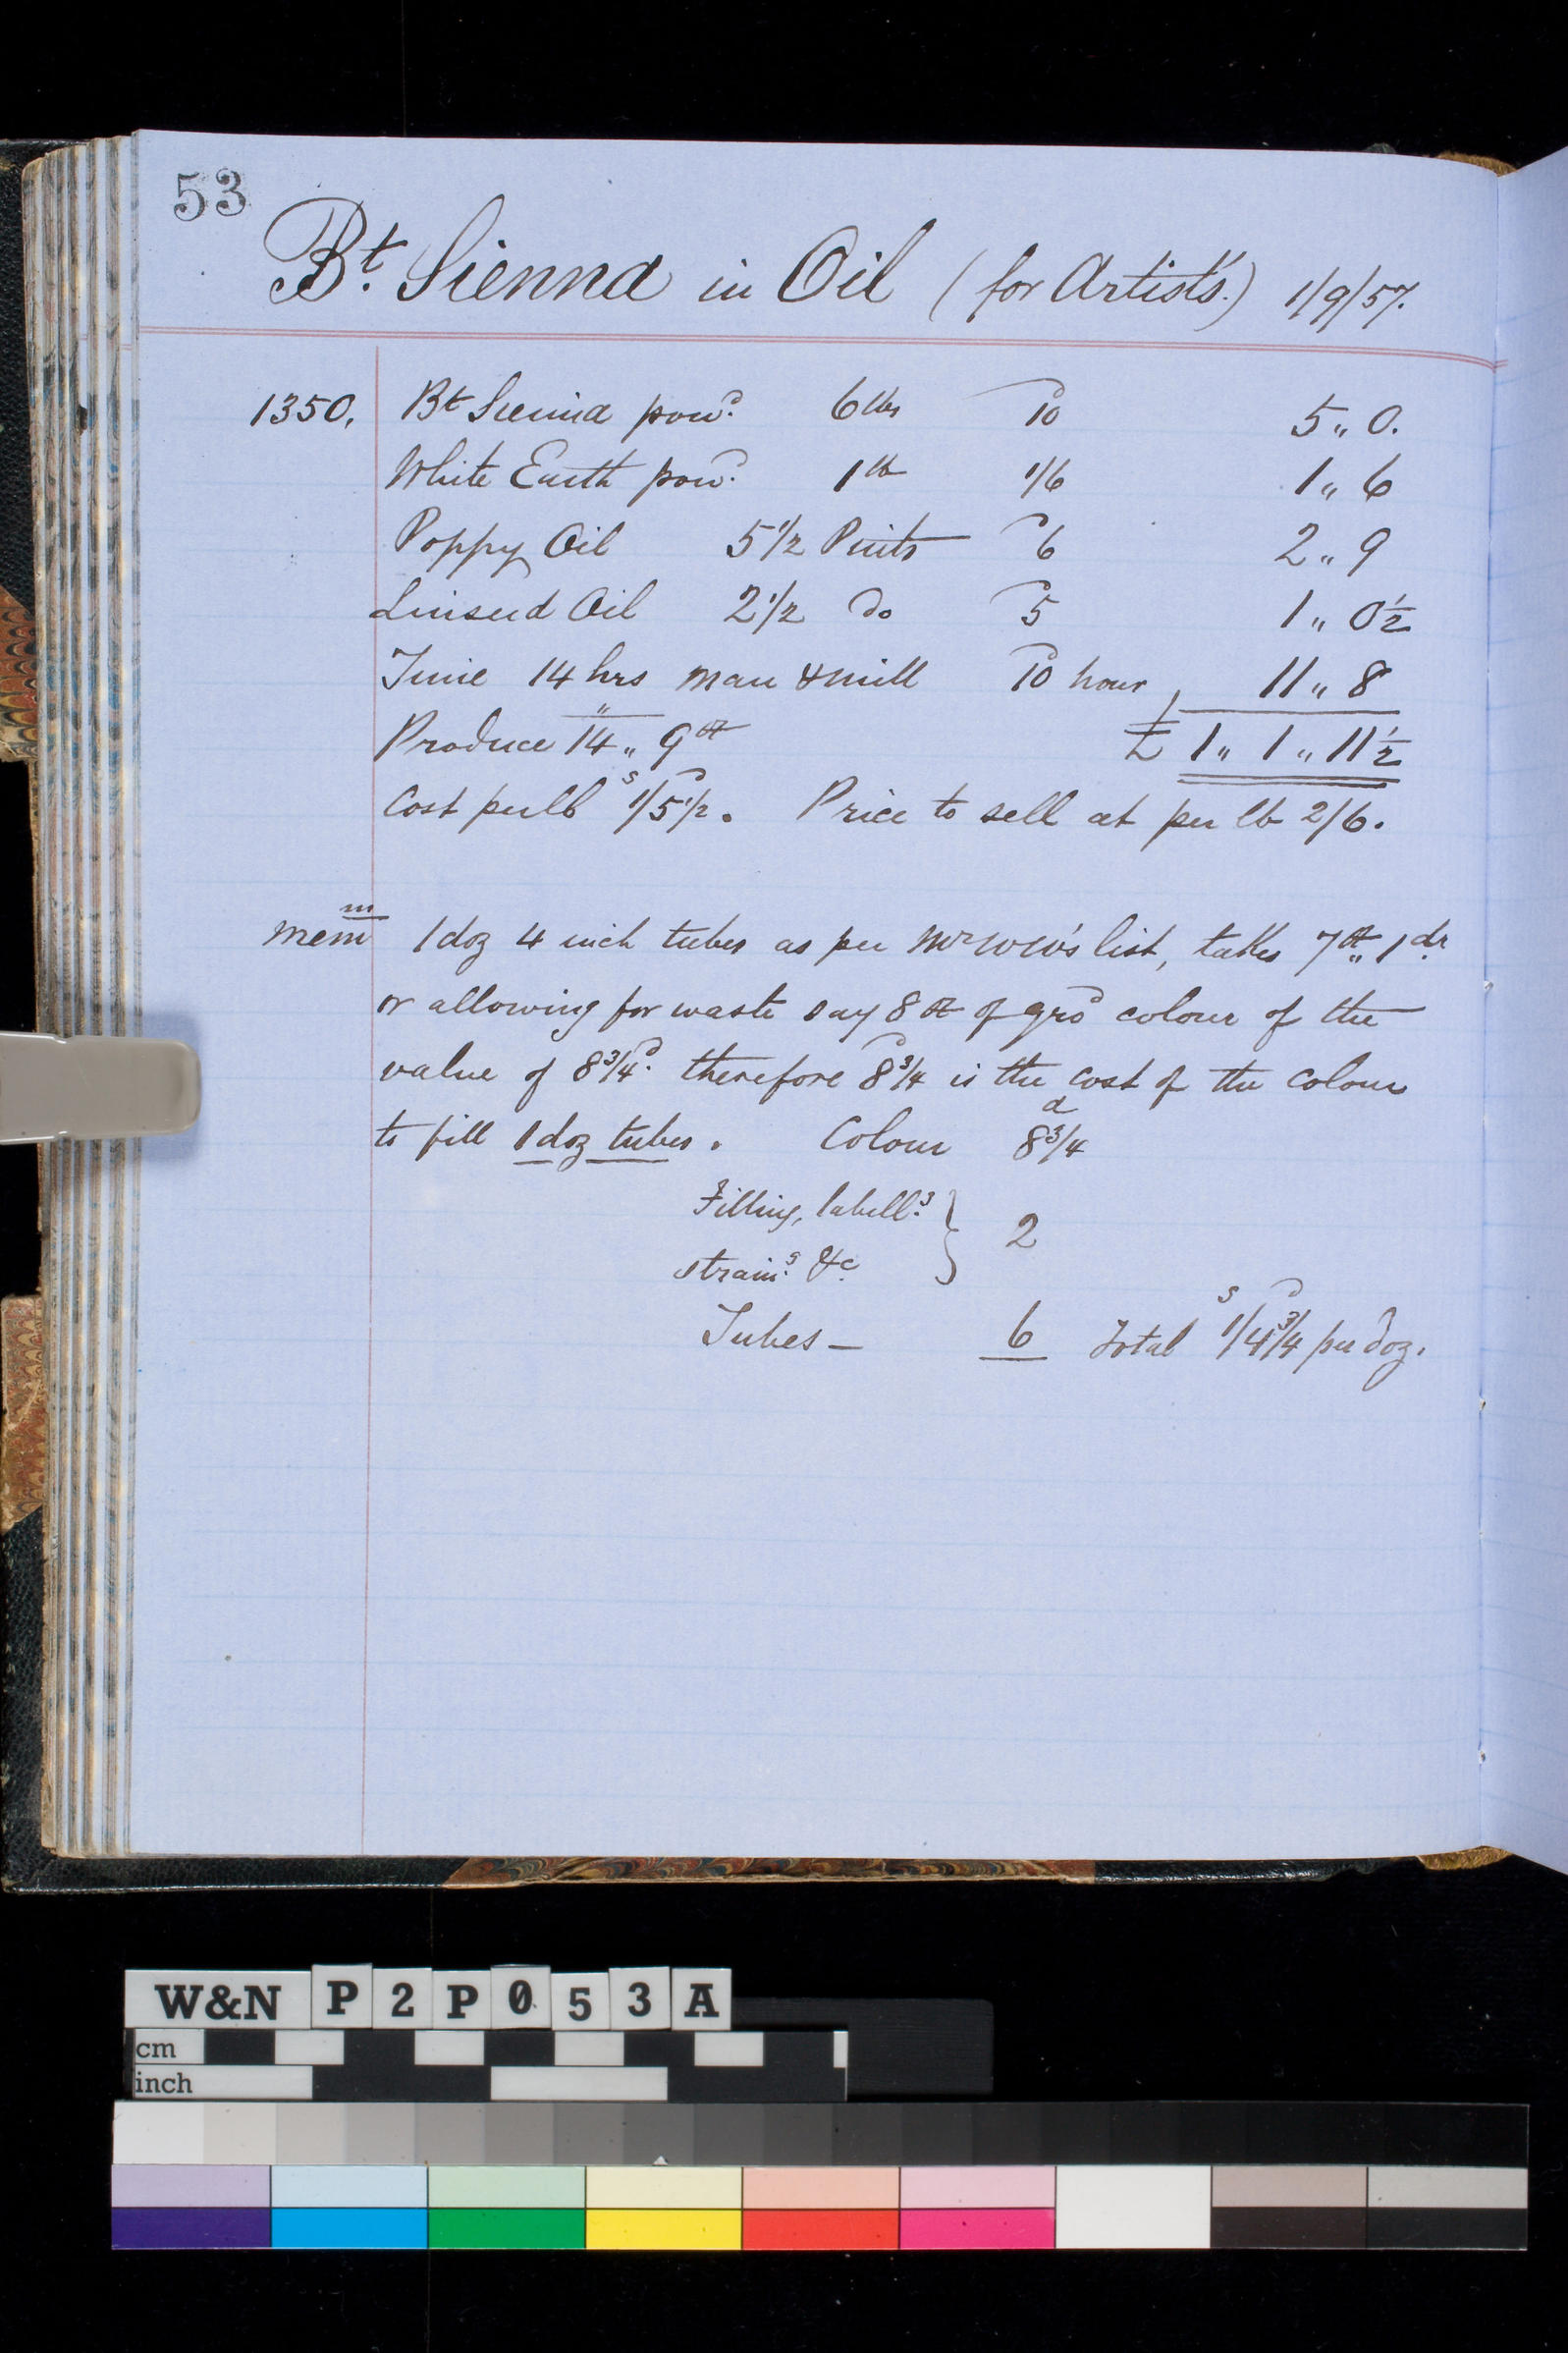 53
Bt. Sienna in Oil (for Artists'.) 1/9/57.
1350. Bt Sienna powd. 6 lbs 10d 5 " 0.
White Earth powd. 1 lb 1/6 1 " 6
Poppy Oil 5 1/2 Pints 6d 2 " 9
Linseed Oil 2 1/2 do 5d 1 " 0 1/2
Time 14 hrs man & mill 10d hour 11 " 8
Produce 14 lb " 9 oz £ 1 " 1 " 11 1/2
Cost per lb 1s/5 1/2d. Price to sell at per lb 2/6.
Memm 1 doz 4 inch tubes as per Mr WW's list, takes 7 oz " 1 dr.
or allowing for waste say 8 oz of grd colour of the
value of 8 3/4d. therefore 8 3/4d is the cost of the colour
to fill 1 doz tubes. Colour 8 3/4d
Filling, labellg. } 2
straing. &c.
Tubes — 6 Total 1s/4 3/4d per doz.
W&N P2P053A
cm
inch